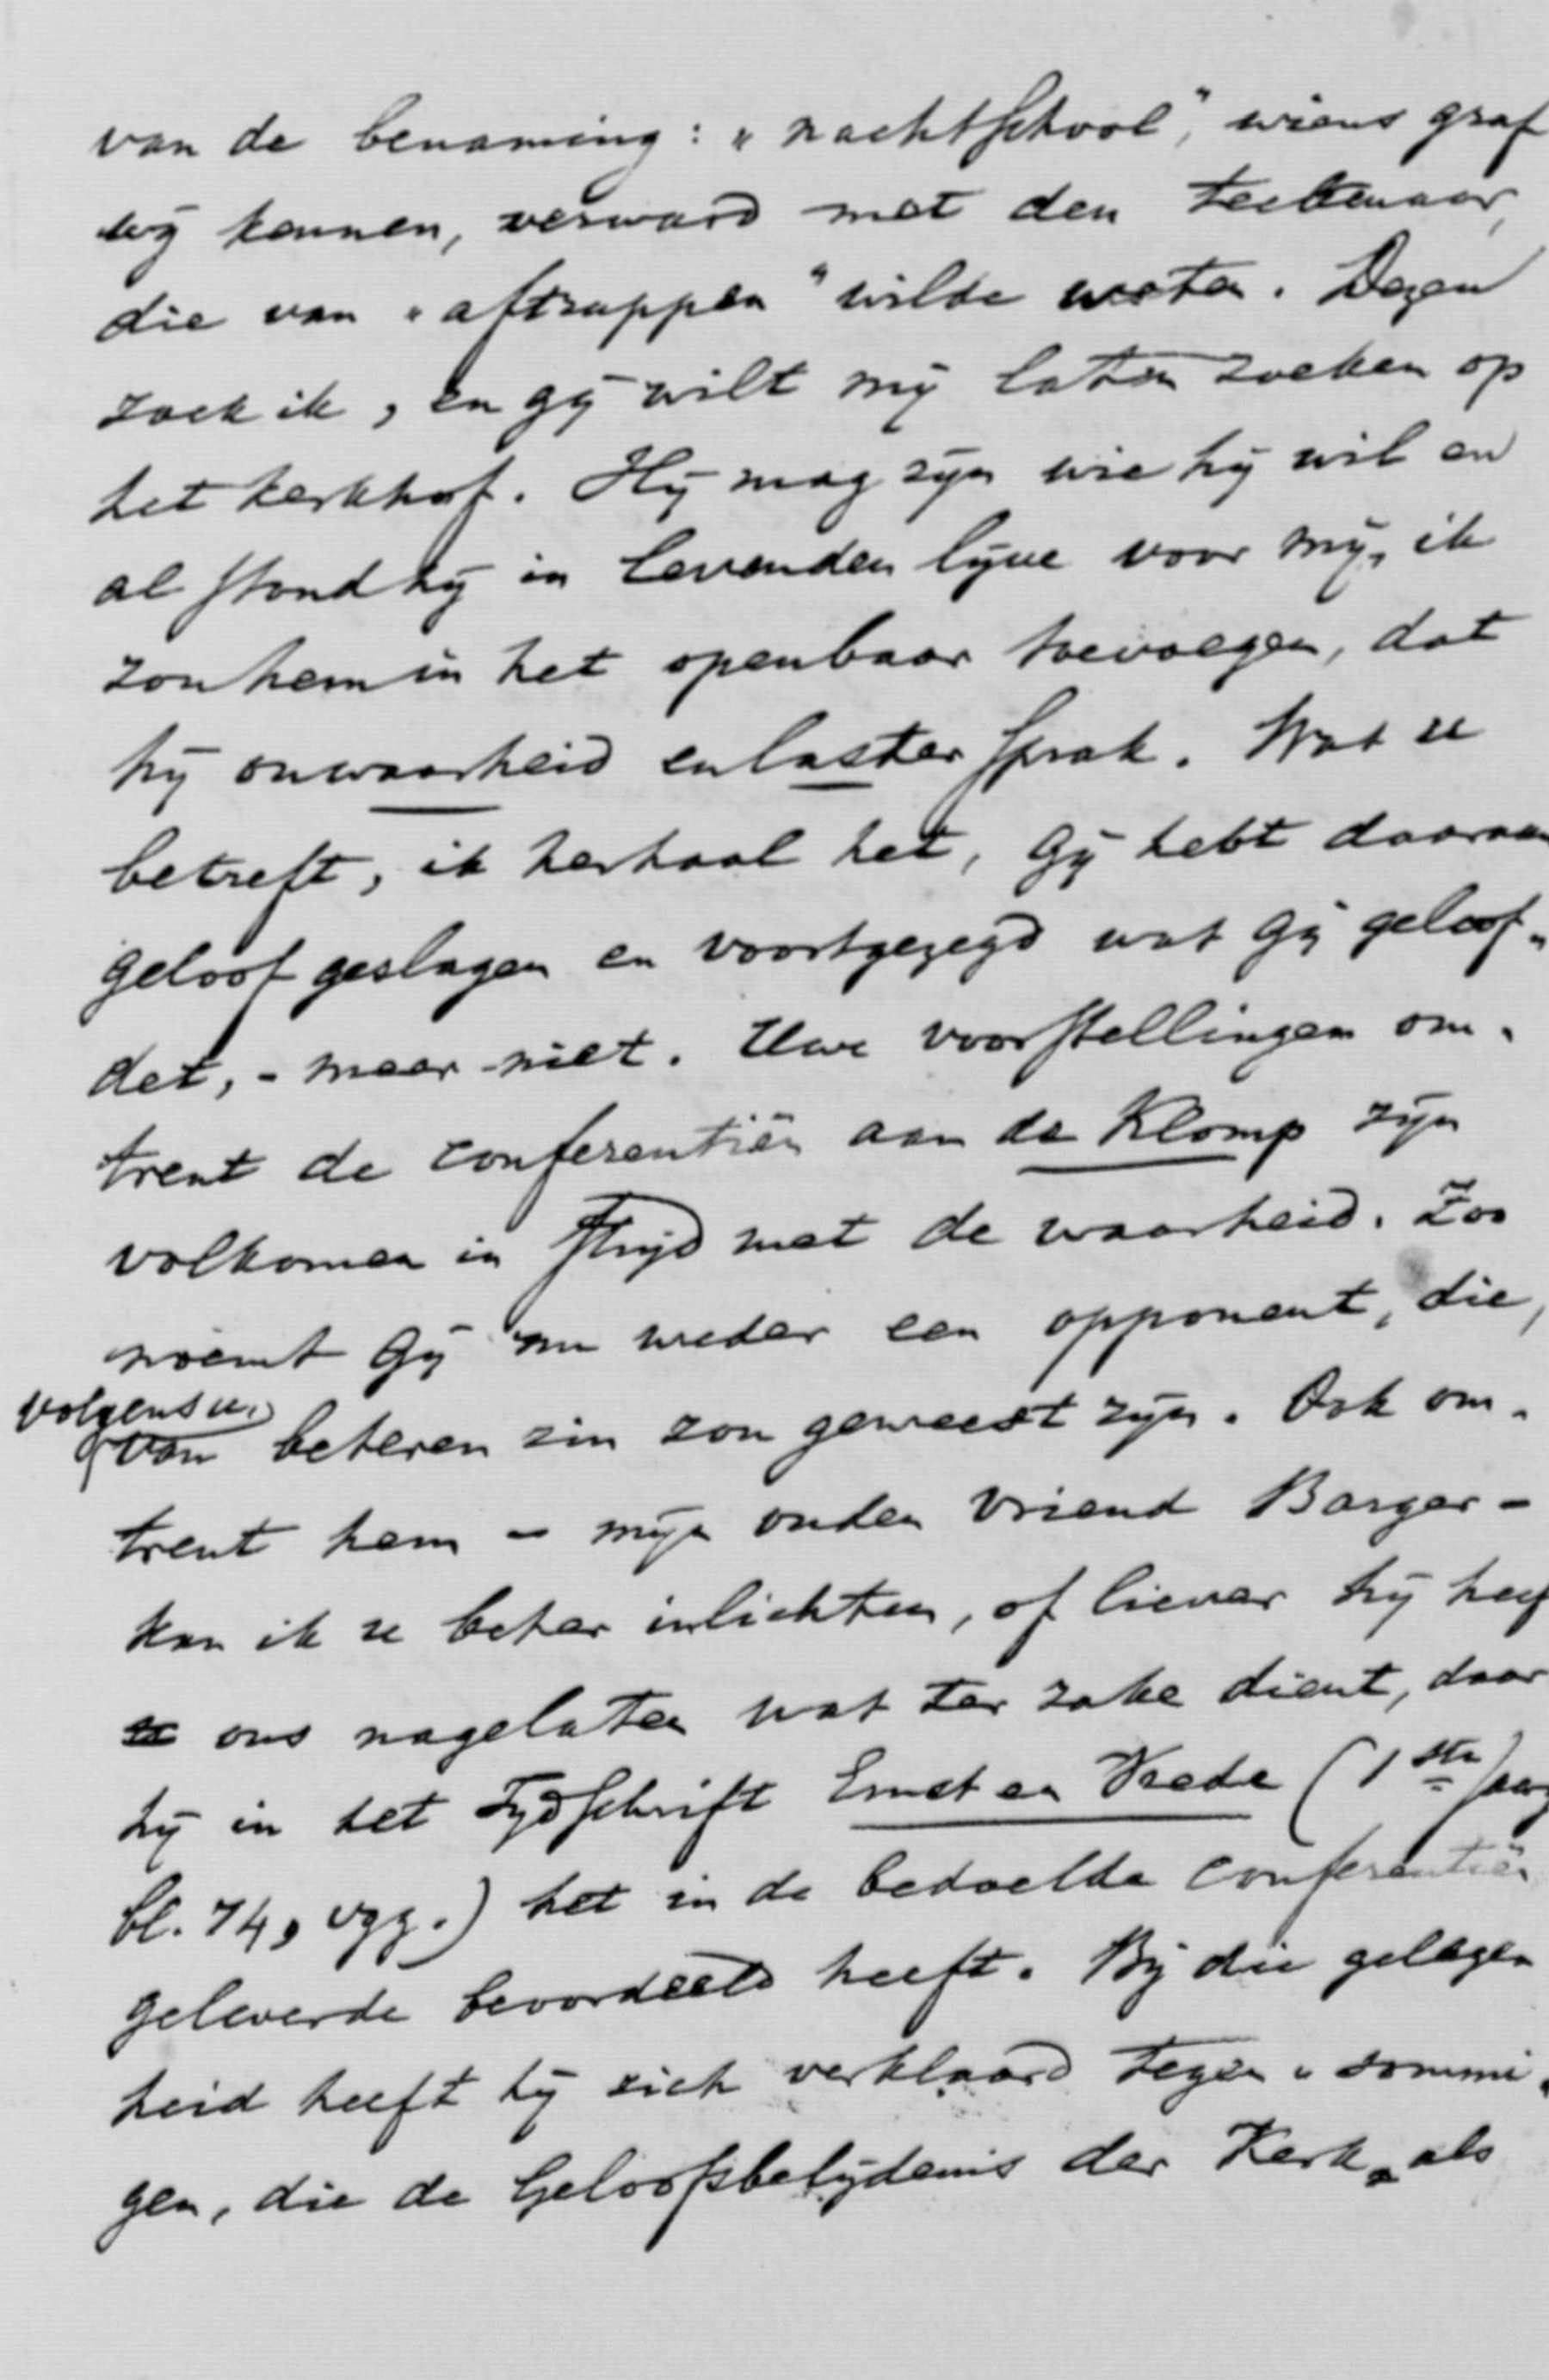 van de benaming: „nachtschool", wiens graf
wij kennen, verward met den teekenaar,
die van „aftrappen" wilde weten. Dezen
zoek ik, en gij wilt mij laten zoeken op
het kerkhof. Hij mag zijn wie hij wil en
al stond hij in levenden lijve voor mij, ik
zou hem in het openbaar toevoegen, dat
hij onwaarheid en laster sprak. Wat u
betreft, ik herhaal het, gij hebt daaraan
geloof geslagen en voortgezegd wat gij geloof-
det, - meer niet. Uwe voorstellingen om-
trent de conferentiën aan de Klomp zijn
volkomen in strijd met de waarheid. Zoo
noemt gij nu weder een opponent, die,
volgens u,
van beteren zin zou geweest zijn. Ook om-
trent hem - mijn ouden vriend Barger -
kan ik u beter inlichten, of liever hij heef
ons nagelaten wat ter zake dient, daar
hij in het Tijdschrift Ernst en Vrede (1ste Jaarg
bl. 74, vgg.) het in de bedoelde conferentiën
geleverde beoordeeld heeft. Bij die gelegen
heid heeft hij zich verklaard tegen „sommi-
gen, die de Geloofsbelijdenis der Kerk als